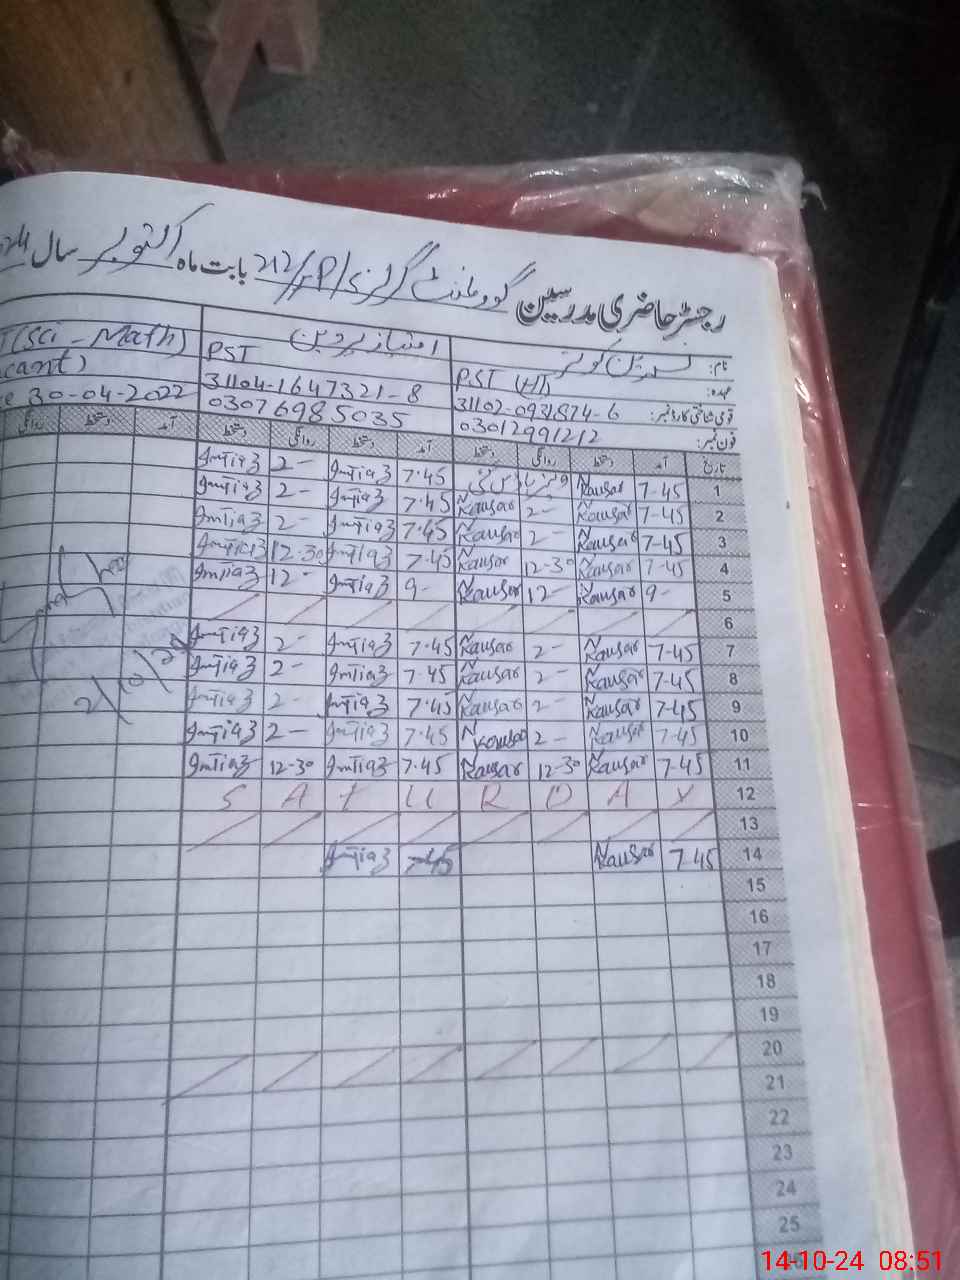 رجسٹر حاضری مدرسین گورنمنٹ گرلز 212/P بابت ماہ اکتوبر سال
نام: نسرین کوثر امتیاز پروین (Sci - Math)
عہدہ: PST (HT) PST
قومی شناختی کارڈ نمبر: 31102-0931874-6 31104-1647321-8 30-04-2022
فون نمبر: 03012991212 03076985035
تاریخ آمد دستخط روانگی دستخط آمد دستخط روانگی دستخط آمد دستخط روانگی
1 7-45 Kausar 7.45 Imtiaz 2- Imtiaz
2 7-45 Kausar 2- Kausar 7.45 Imtiaz 2- Imtiaz
3 7-45 Kausar 2- Kausar 7.45 Imtiaz 2- Imtiaz
4 7-45 Kausar 12-30 Kausar 7.45 Imtiaz 12-30 Imtiaz
5 9- Kausar 12- Kausar 9- Imtiaz 12- Imtiaz
6
7 7-45 Kausar 2- Kausar 7.45 Imtiaz 2- Imtiaz
8 7-45 Kausar 2- Kausar 7.45 Imtiaz 2- Imtiaz
9 7-45 Kausar 2- Kausar 7.45 Imtiaz 2- Imtiaz
10 7-45 Kausar 2- Kausar 7.45 Imtiaz 2- Imtiaz
11 7-45 Kausar 12-30 Kausar 7.45 Imtiaz 12-30 Imtiaz
S A t U R D A Y 12
13
14 7-45 Kausar 7-45 Imtiaz
15
16
17
18
19
20
21
22
23
24
25
14-10-24 08:51